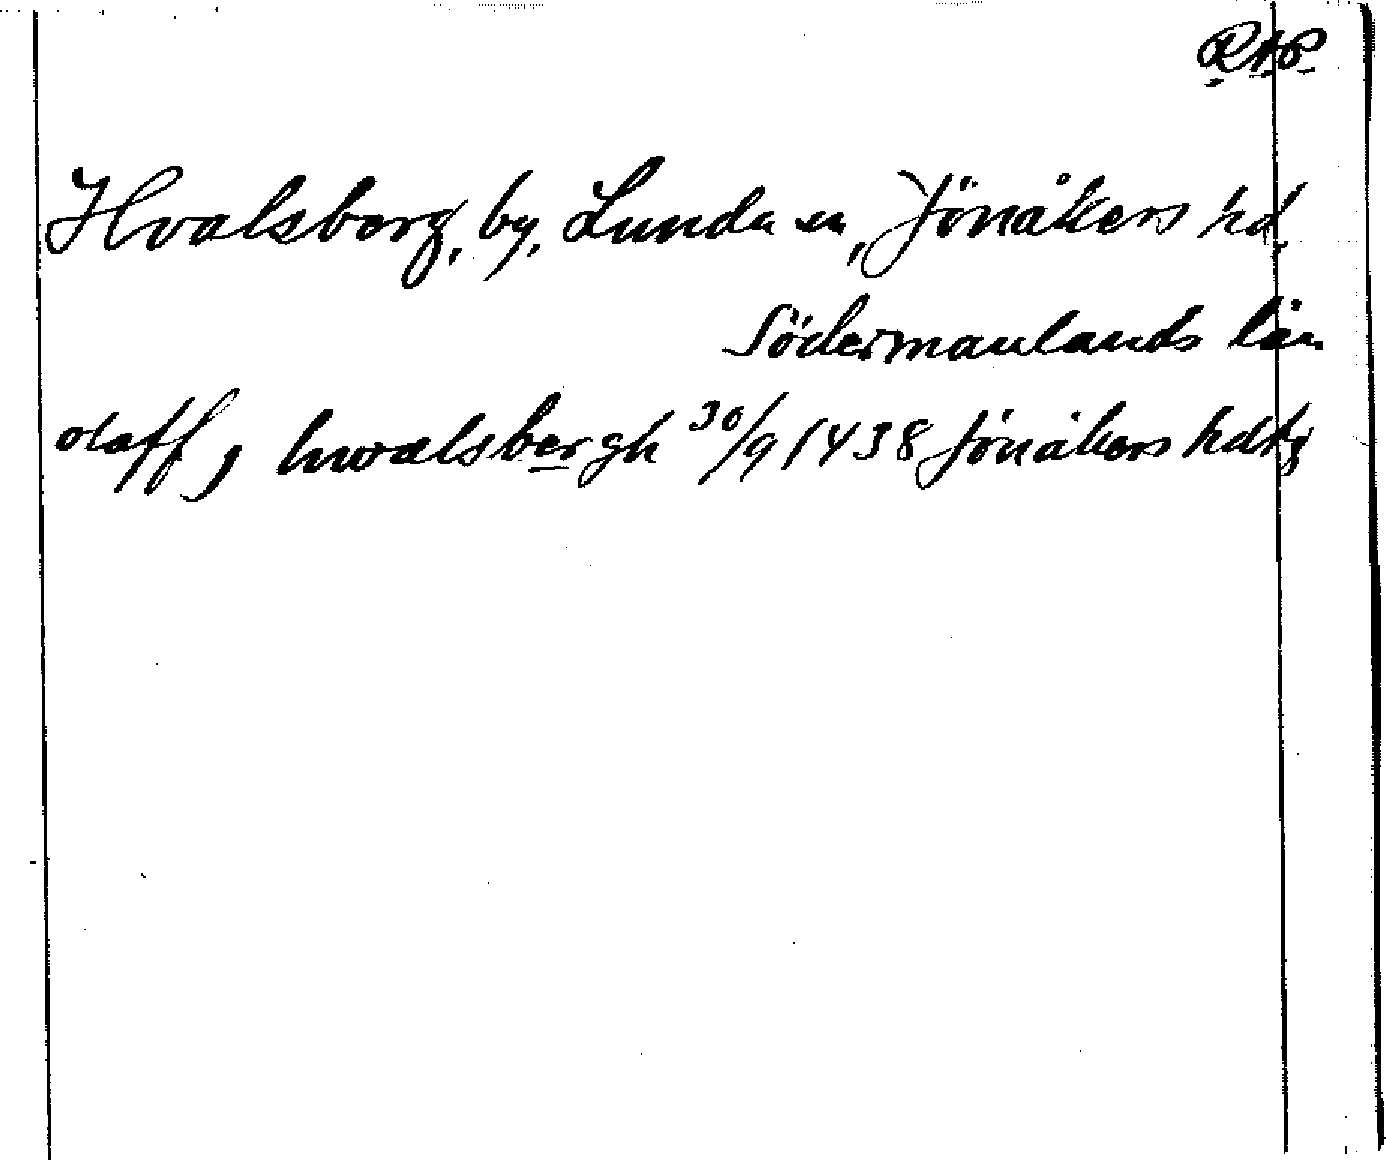 RAP
Hvalsberg, by, Lunda sn, Jönåkers hd,
Södermanlands län
olaff j hwalsbergh 30/9 1438 Jönåkers hdtg